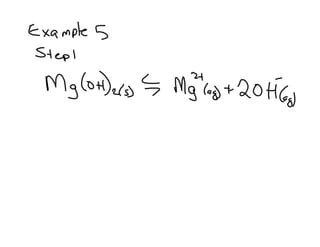 Example 5
Step 1
Mg(OH)₂(s) ⇆ Mg²⁺(aq) + 2OH⁻(aq)